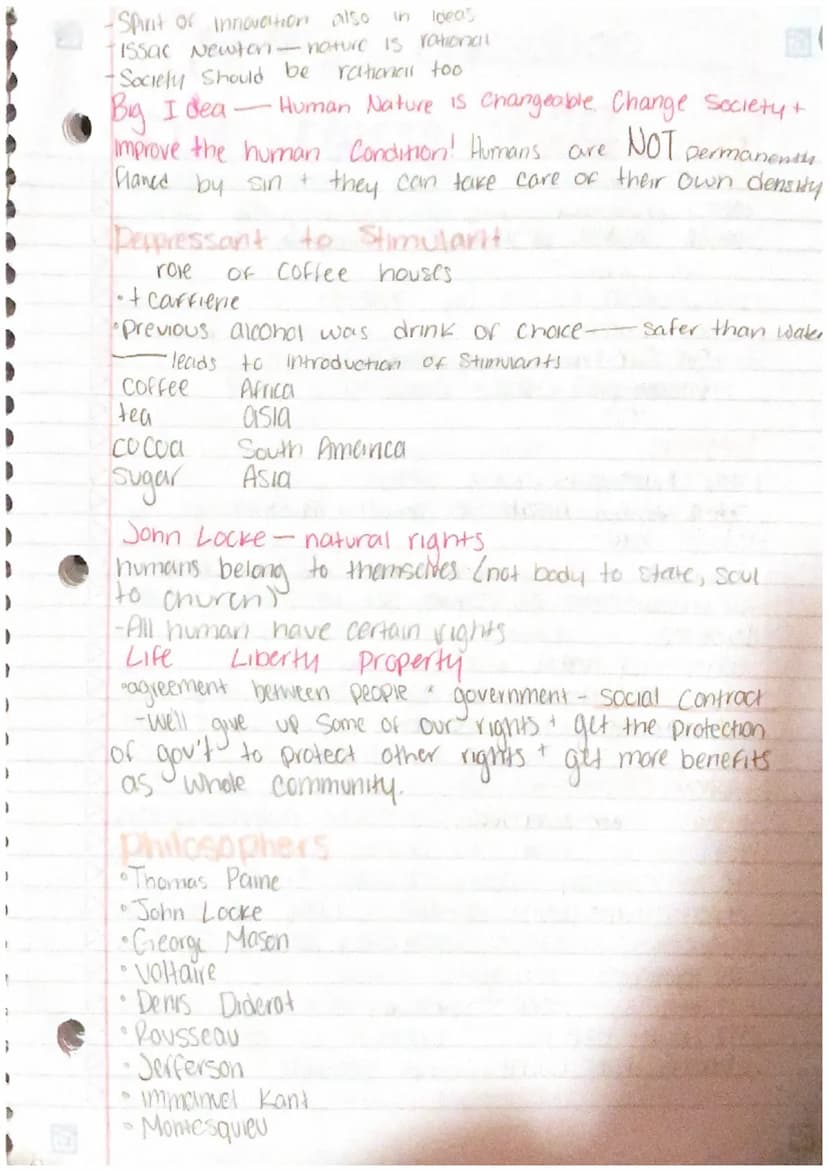 - Spirit of innovation also in ideas
- Issac Newton — nature is rational
- Society should be rational too
Big Idea — Human Nature is changeable. Change Society +
improve the human condition! Humans are NOT permanently
by sin + they can take care of their own density
Deppressant to Stimulant
role of coffee houses
• + caffiene
• Previous alcohol was drink of choice — safer than water
— leads to introduction of stimulants
coffee Africa
tea asia
cocoa South America
sugar Asia
John Locke — natural rights
humans belong to themselves (not body to state, soul
to church)
- All human have certain rights
Life Liberty Property
• agreement between people + government - social contract
- We'll give up some of our rights + get the protection
of gov't to protect other rights + get more benefits
as whole community.
Philosophers
• Thomas Paine
• John Locke
• George Mason
• Voltaire
• Denis Diderot
• Rousseau
• Jefferson
• Immanuel Kant
• Montesquieu